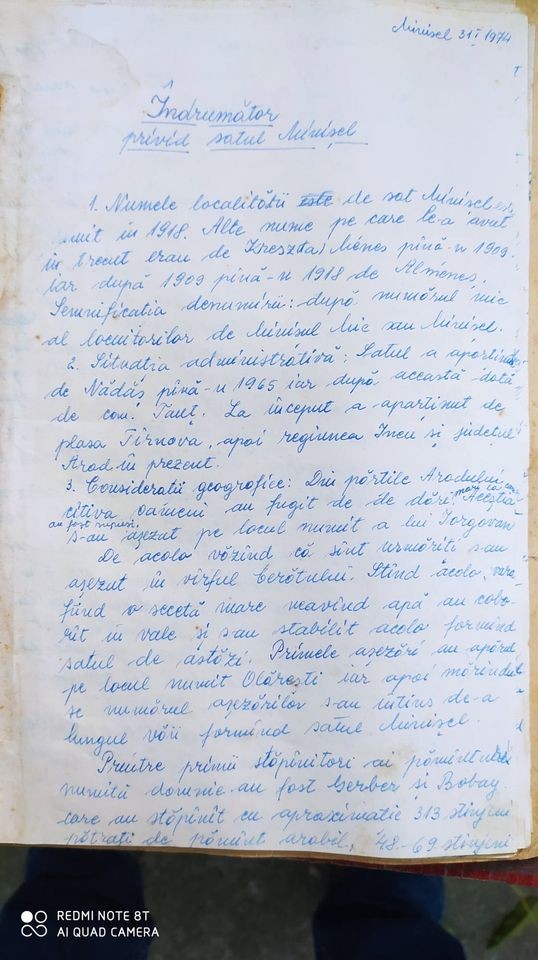 Minișel 31 I 1974
Îndrumător
privid satul Minișel
1. Numele localității este de sat Minișel
în 1918. Alte nume pe care le-a avut
în trecut erau de Kreszta Menes pînă-n 1909
iar după 1909 pînă-n 1918 de Almenes.
Semnificatia denumirii: după numărul mic
al locuitorilor de Minisul Mic sau Minișel.
2. Situatia administrativă: Satul a aparținut
de Nădăș pînă-n 1965 iar după această dată
de com. Tauț. La început a apartinut de
plasa Tîrnova, apoi regiunea Ineu și județul
Arad în prezent.
3. Consideratii geografice: Din părtile Aradului
cîtiva oameni au fugit de dări mari la care
au fost supusi. Aceștia
s-au așezat pe locul numit a lui Iorgovan
De acolo văzînd că sînt urmăriti s-au
așezat în vîrful Cerătului. Stînd acolo, vara
fiind o secetă mare neavînd apă au cobo-
rît în vale și s-au stabilit acolo formînd
satul de astăzi. Primele așezări au apărut
pe locul numit Olărești iar apoi mărindu-
se numărul așezărilor s-au întins de-a
lungul văii formînd satul Minișel.
Printre primii stăpînitori ai pămîntului
numitii domnie au fost Gerber și Bobay
care au stăpînit cu aproximatie 313 stînjeni
pătrați de pămînt arabil, 48-69 stînjeni
REDMI NOTE 8T
AI QUAD CAMERA